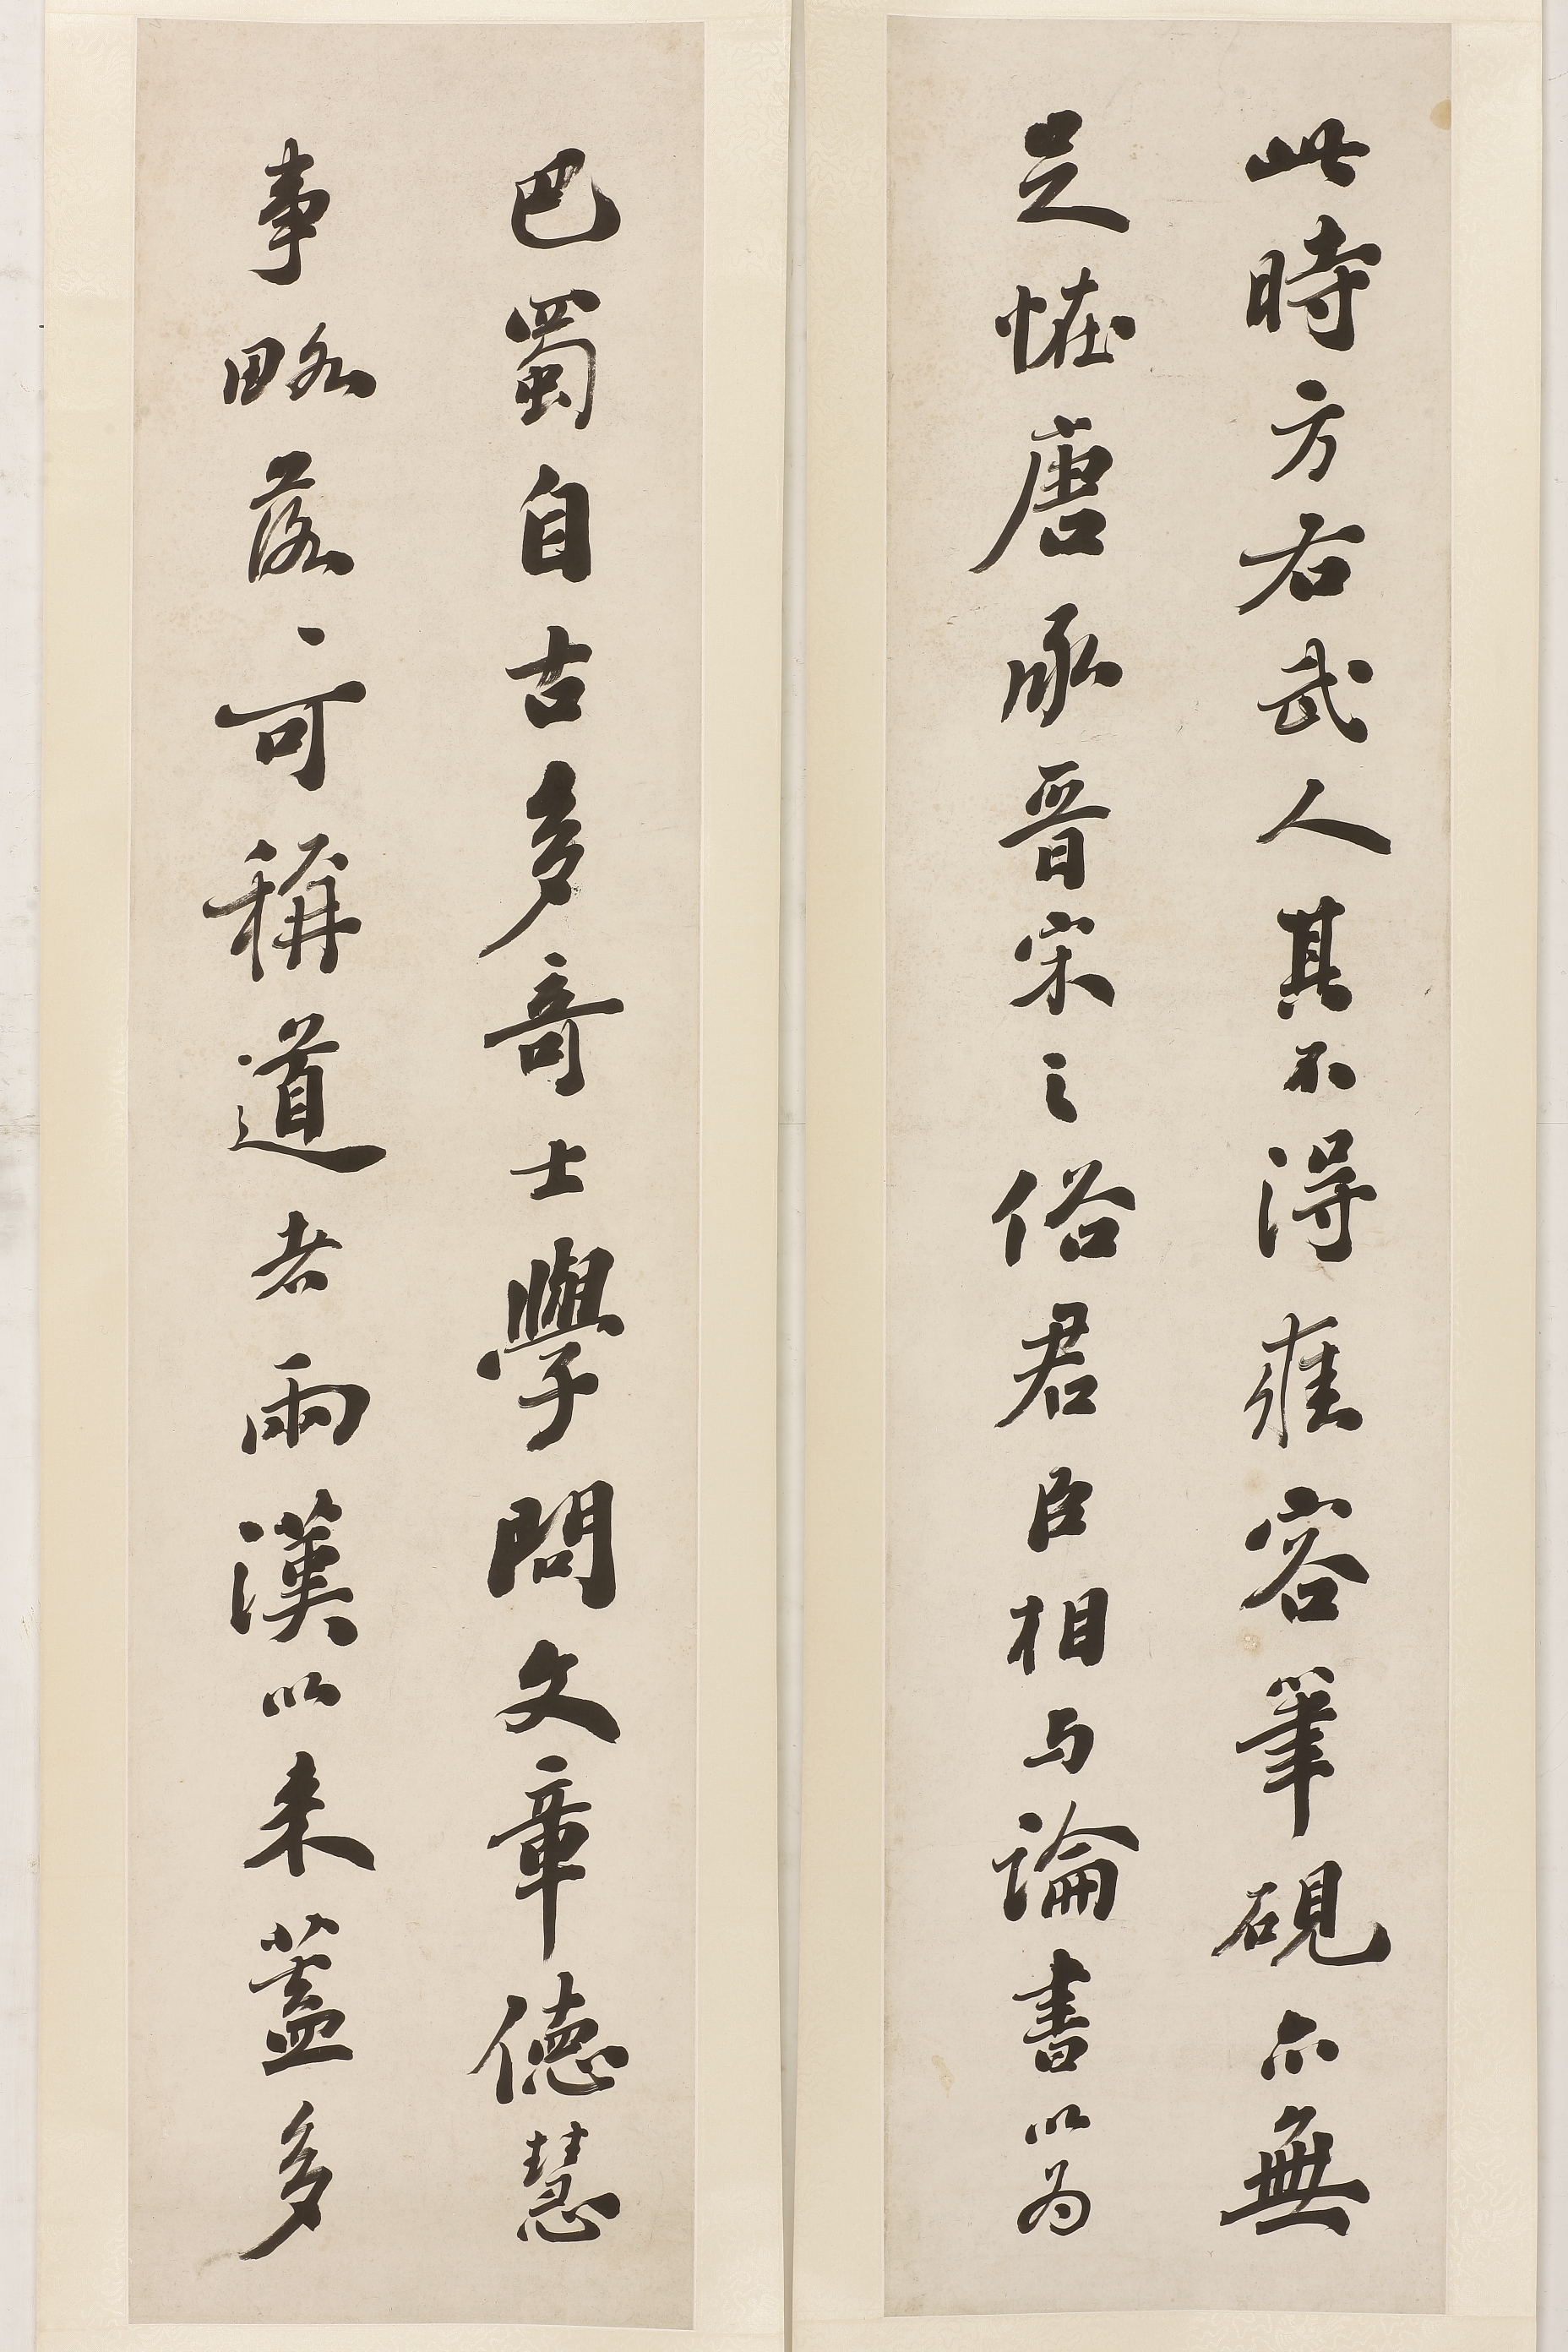 此時方右武人其不得雍容筆硯亦無
足怪唐承晉宋之俗君臣相與論書以為
巴蜀自古多奇士學問文章德慧
事略落可稱道者兩漢以來蓋多